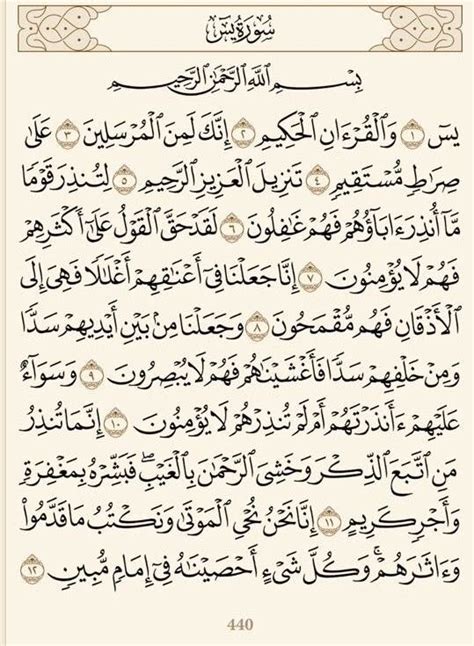 سُورَةُ يسٓ
بِسْمِ ٱللَّهِ ٱلرَّحْمَٰنِ ٱلرَّحِيمِ
يسٓ ١ وَٱلْقُرْءَانِ ٱلْحَكِيمِ ٢ إِنَّكَ لَمِنَ ٱلْمُرْسَلِينَ ٣ عَلَىٰ
صِرَٰطٍ مُّسْتَقِيمٍ ٤ تَنزِيلَ ٱلْعَزِيزِ ٱلرَّحِيمِ ٥ لِتُنذِرَ قَوْمًا
مَّآ أُنذِرَ ءَابَآؤُهُمْ فَهُمْ غَٰفِلُونَ ٦ لَقَدْ حَقَّ ٱلْقَوْلُ عَلَىٰٓ أَكْثَرِهِمْ
فَهُمْ لَا يُؤْمِنُونَ ٧ إِنَّا جَعَلْنَا فِىٓ أَعْنَٰقِهِمْ أَغْلَٰلًا فَهِىَ إِلَى
ٱلْأَذْقَانِ فَهُم مُّقْمَحُونَ ٨ وَجَعَلْنَا مِنۢ بَيْنِ أَيْدِيهِمْ سَدًّا
وَمِنْ خَلْفِهِمْ سَدًّا فَأَغْشَيْنَٰهُمْ فَهُمْ لَا يُبْصِرُونَ ٩ وَسَوَآءٌ
عَلَيْهِمْ ءَأَنذَرْتَهُمْ أَمْ لَمْ تُنذِرْهُمْ لَا يُؤْمِنُونَ ١٠ إِنَّمَا تُنذِرُ
مَنِ ٱتَّبَعَ ٱلذِّكْرَ وَخَشِىَ ٱلرَّحْمَٰنَ بِٱلْغَيْبِ ۖ فَبَشِّرْهُ بِمَغْفِرَةٍ
وَأَجْرٍ كَرِيمٍ ١١ إِنَّا نَحْنُ نُحْىِ ٱلْمَوْتَىٰ وَنَكْتُبُ مَا قَدَّمُوا۟
وَءَاثَٰرَهُمْ ۚ وَكُلَّ شَىْءٍ أَحْصَيْنَٰهُ فِىٓ إِمَامٍ مُّبِينٍ ١٢
440